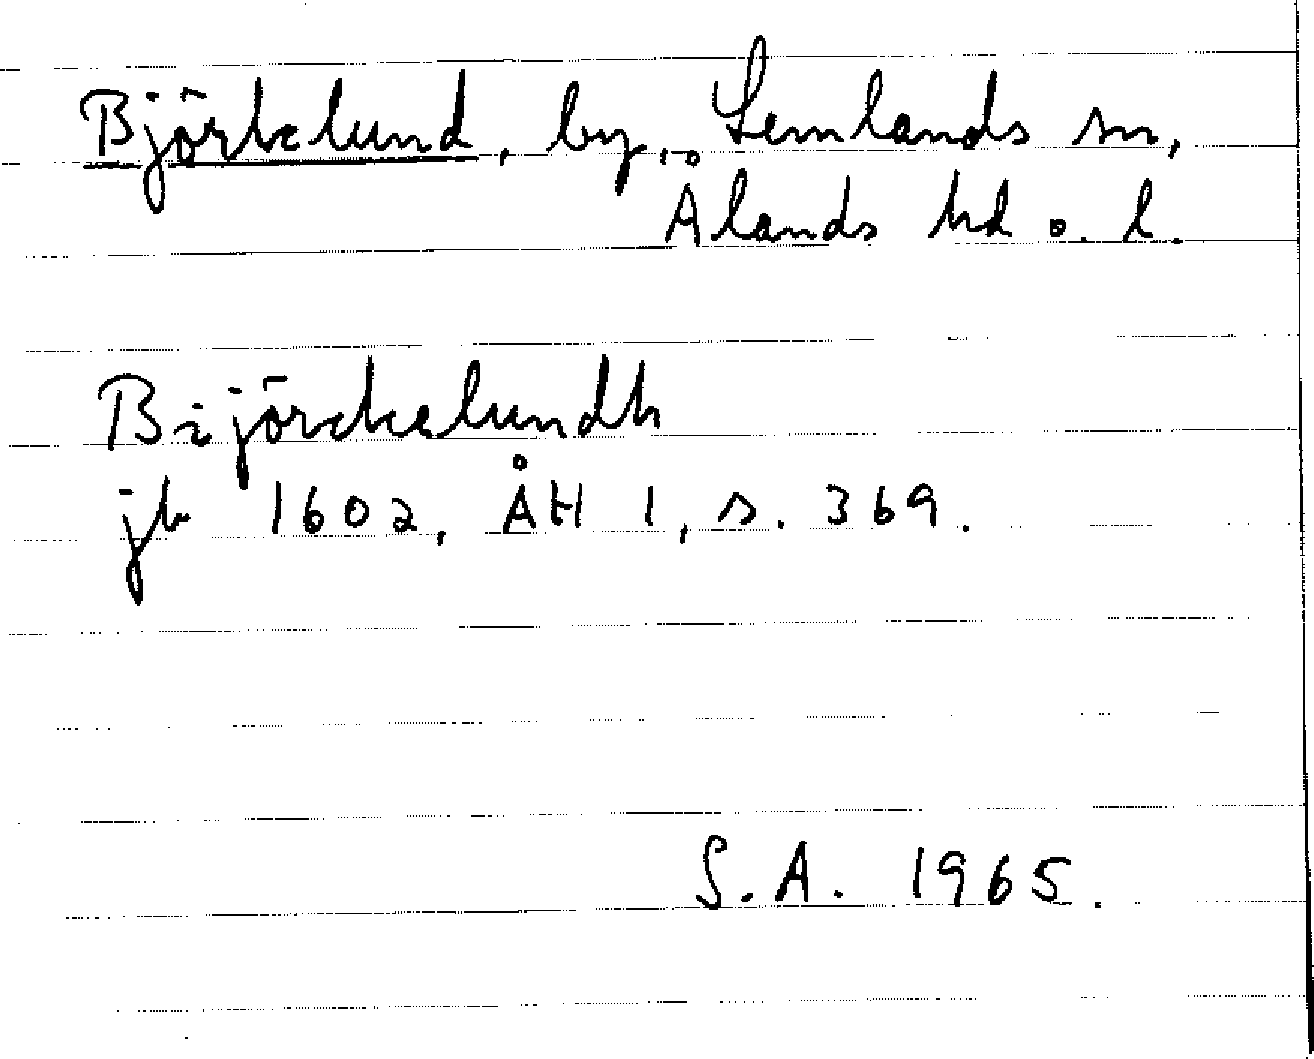 Björklund, by, Lemlands sn,
Ålands hd o. l.
Bijörckelundh
jb 1602, ÅH 1, s. 369.
S.A. 1965.